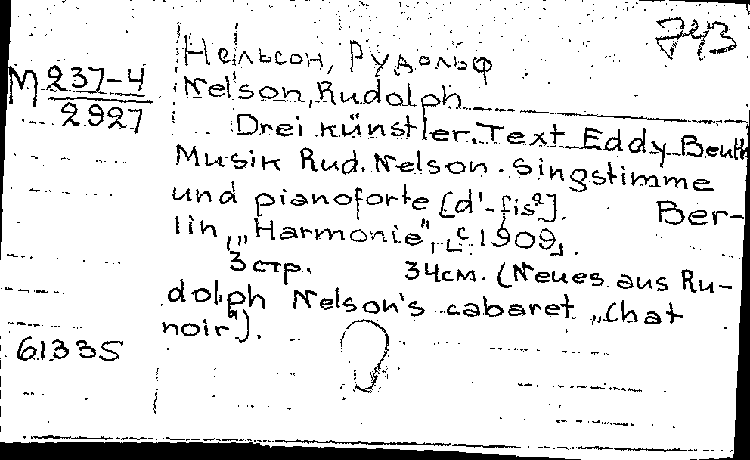 743
Нельсон, Рудольф
М 237-4
2927
Nelson, Rudolph
Drei Künstler. Text Eddy Beuth
Musik Rud. Nelson. Singstimme
und pianoforte [d'-fis²]. Ber-
lin, „Harmonie", [c. 1909].
3 стр. 34см. (Neues aus Ru-
dolph Nelson's cabaret „Chat
noir").
61335